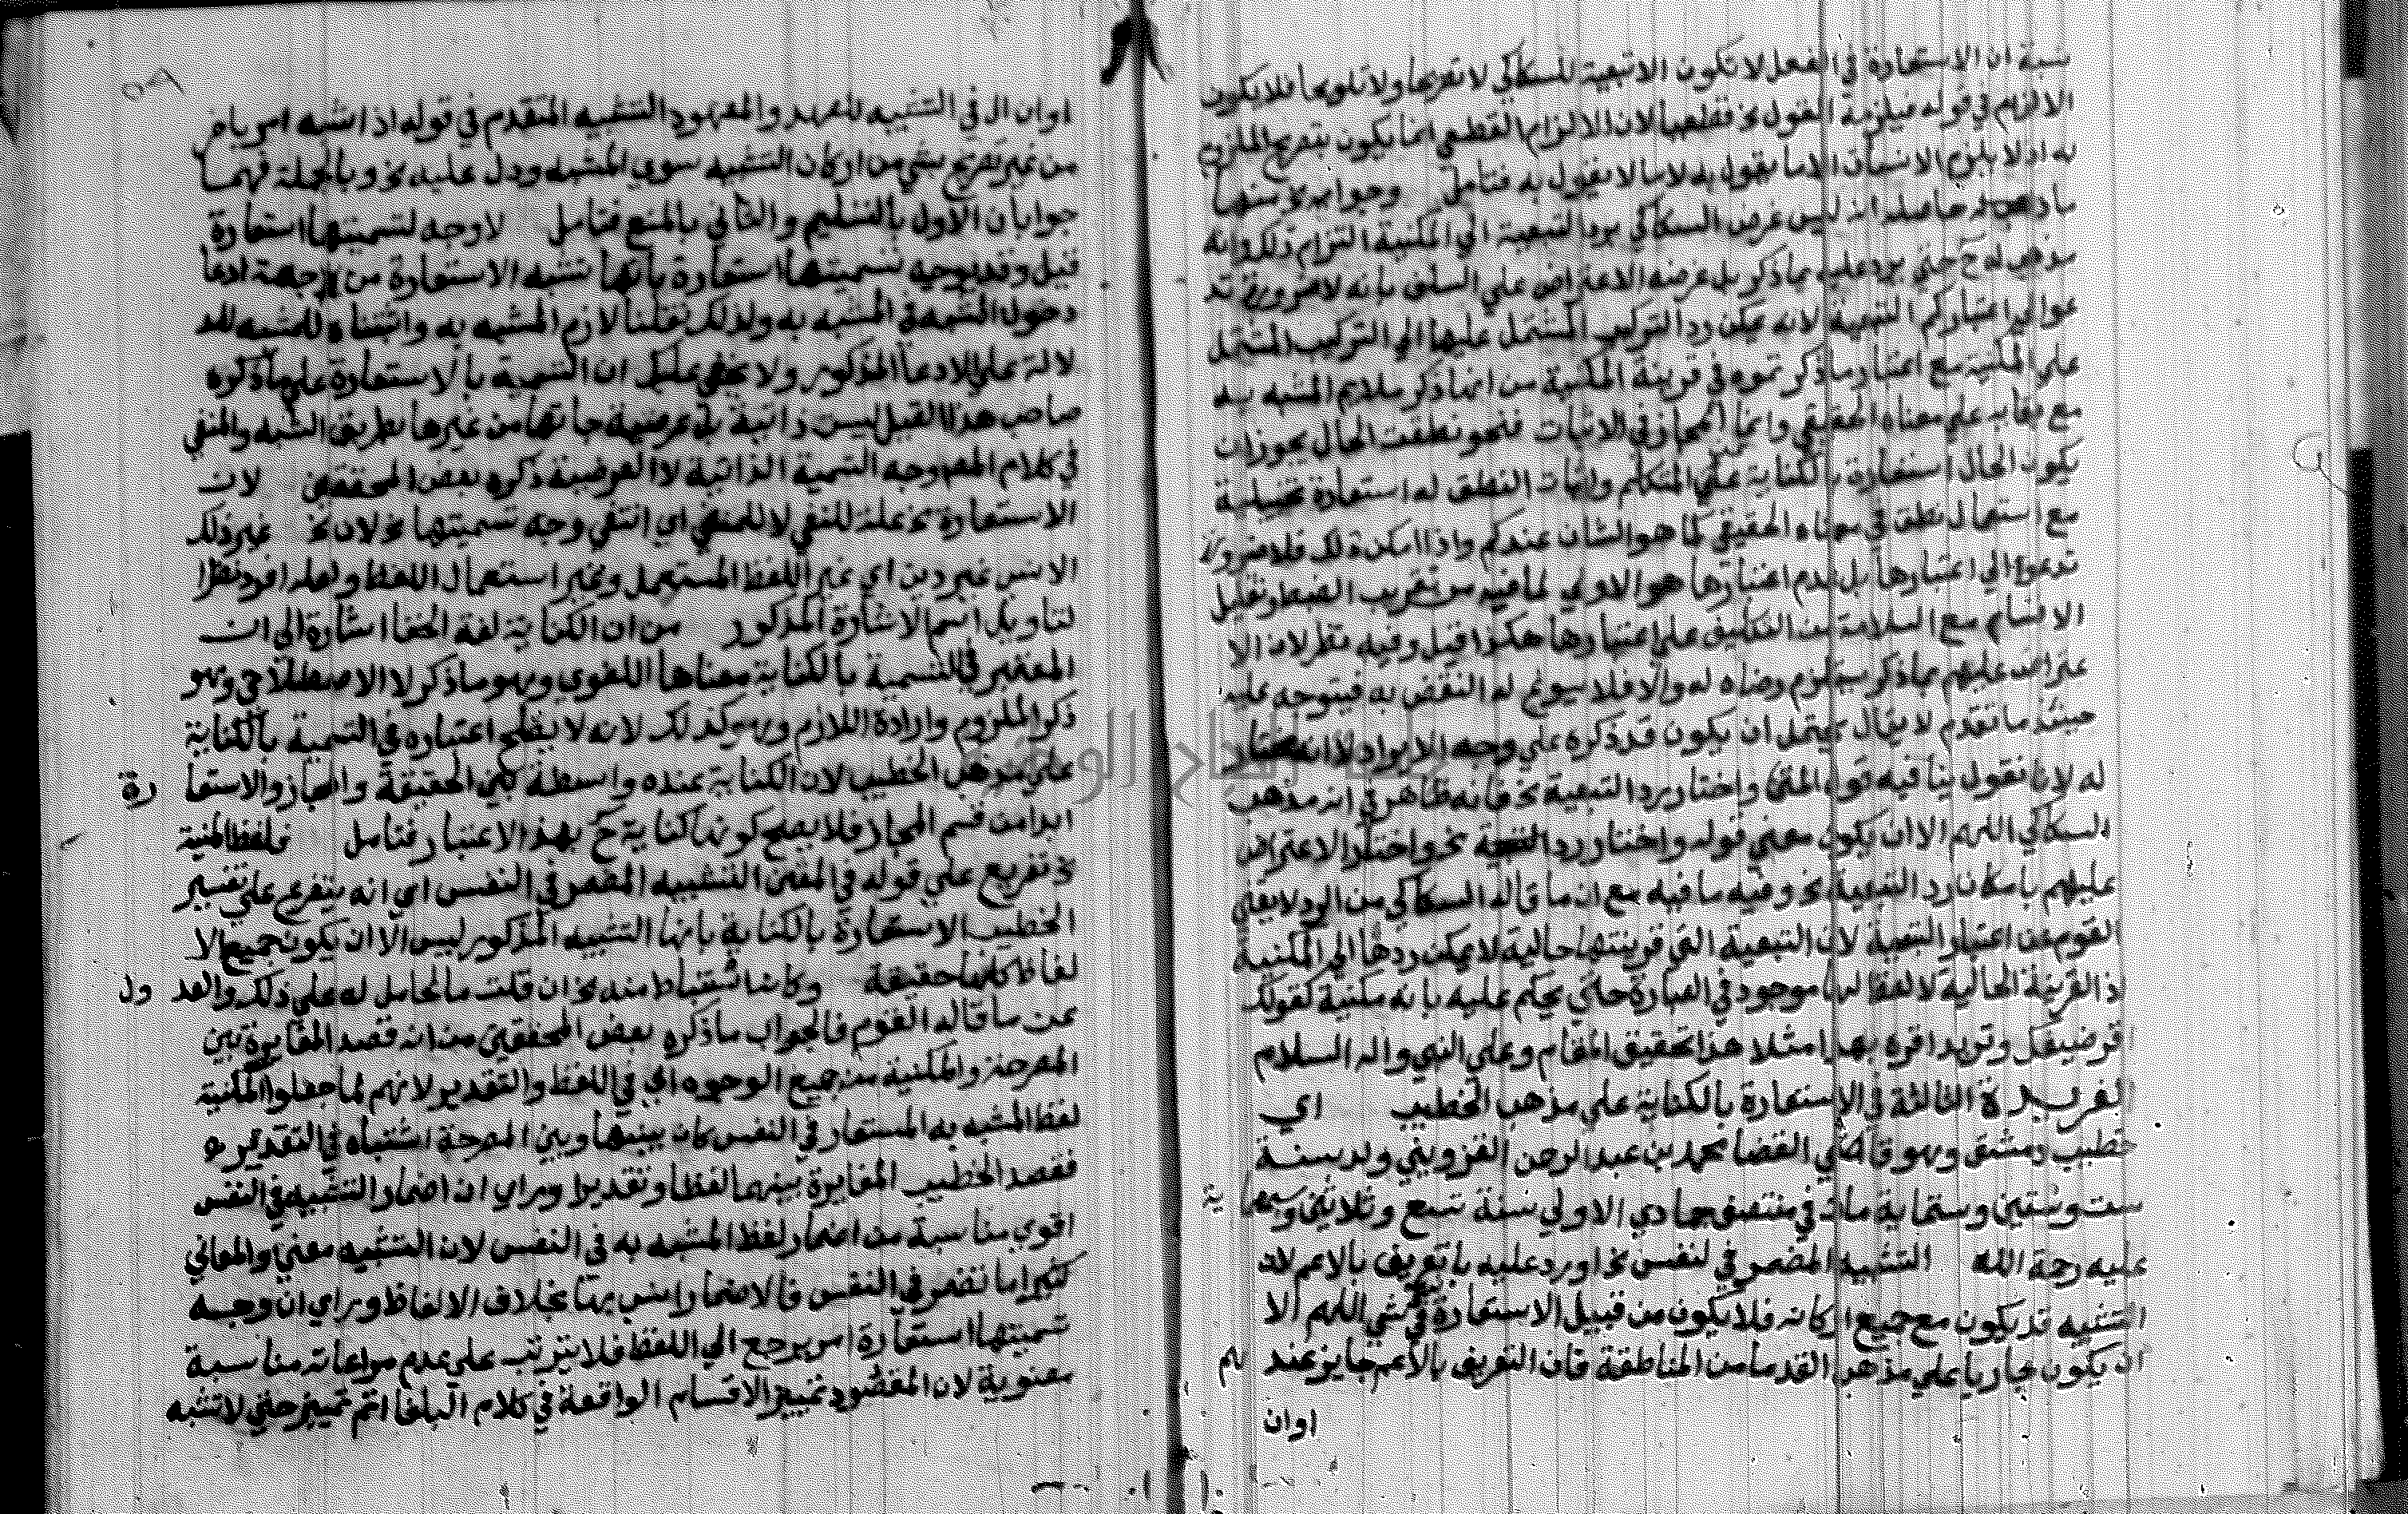 نسبة ان الاستعارة في الفعل لا تكون الا تبعية للسكاكي لا تصريحا ولا تلويحا فلا يكون
الالزام في قوله فيلزمه القول نخ قطعيا لان الالزام القطعي انما يكون بتصريح الملزم
به اذ لا يلزم الانسان الا ما يقول به لا ما لا يقول به فتامل وجوابه نخ منها
ما حاصله انه ليس غرض السكاكي برد التبعية الي المكنية التزام ذلك وانه
مذهب له ح حتي يرد عليه بما ذكر بل غرضه الاعتراض علي السلف بانه لا ضرورة تد
عوا الي اعتباركم التبعية لانه يمكن رد التركيب المشتمل عليها الي التركيب المشتمل
علي المكنية مع اعتبار ما ذكرتموه في قرينة المكنية من انما ذكر ملايم المشبه به
مع بقايه علي معناه الحقيقي وانما المجاز في الاثبات فنحو نطقت الحال يجوز ان
يكون الحال استعارة بالكناية عن المتكلم واثبات النطق له استعارة تخييلية
مع استعمال نطق في معناه الحقيقي كما هو الشان عندكم واذا امكن ذلك فلا ضرورة
تدعوا الي اعتبارها بل عدم اعتبارها هو الاولي لما فيه من تقريب الضبط وتقليل
الاقسام مع السلامة من التكليف علي اعتبارها هكذا قيل وفيه نظر لان الا
عتراض عليهم بما ذكر يستلزم رضاه له والا فلا يسوغ له النقض به فيتوجه عليه
حينئذ ما تقدم لا يقال يحتمل ان يكون قد ذكره علي وجه الايراد لا انه
له لانا نقول ينافيه قول المتن واختار رد التبعية نخ فانه ظاهر في انه مذهب
السكاكي اللهم الا ان يكون معني قوله واختار رد التبعية نخ واختار الاعتراض
عليهم بامكان رد التبعية نخ وفيه ما فيه مع ان ما قاله السكاكي من الرد لا يغني
القوم عن اعتبار التبعية لان التبعية التي قرينتها حالية لا يمكن ردها الي المكنية
اذ القرينة الحالية لا لفظ لها موجود في العبارة حتي يحكم عليه بانه مكنية كقولك
اقر ضيفك وتريد اقره بهذا مثلا هذا تحقيق المقام وعلي النبي واله السلام
الفريدة الثالثة في الاستعارة بالكناية علي مذهب الخطيب اي
خطيب دمشق وهو قاضي القضا محمد بن عبد الرحمن القزويني ولد سنة
ست وستين وستماية مات في منتصف جمادي الاولي سنة تسع وثلاثين وسبعماية
عليه رحمة الله التشبيه المضمر في النفس نخ اورد عليه بانه تعريف بالاعم لان
التشبيه قد يكون مع جميع اركانه فلا يكون من قبيل الاستعارة في شي اللهم الا
ان يكون جاريا علي مذهب القدما من المناطقة فان التعريف بالاعم جايز عندهم
اوان
اوان ال في التشبيه للعهد والمعهود التشبيه المتقدم في قوله اذا شبه امر بامر
من غير تصريح بشي من اركان التشبيه سوي المشبه ودل عليه نخ وبالجملة فهما
جوابان الاول بالتسليم والثاني بالمنع فتامل لا وجه لتسميتها استعارة
قيل وقد يوجه تسميتها استعارة بانها تشبه الاستعارة من جهة ادعا
دخول المشبه في المشبه به ولذلك نقلنا لازم المشبه به واثبتناه للمشبه للد
لالة علي الادعا المذكور ولا يخفي عليك ان التسمية بالاستعارة علي ما ذكره
صاحب هذا القيل ليس ذاتية بل عرضية جاتها من غيرها بطريق الشبه والمنفي
في كلام المص وجه التسمية الذاتية لا العرضية ذكره بعض المحققين لان
الاستعارة نخ علة للنفي لا للمنفي اي انتفي وجه تسميتها نخ لان نخ غير ذلك
الانسب غير دين اي غير اللفظ المستعمل وغير استعمال اللفظ ولعله افرد نظرا
لتاويل اسم الاشارة المذكور من ان الكناية لغة الخفا اشارة الي ان
المعتبر في التسمية بالكناية معناها اللغوي وهو ما ذكر لا الاصطلاحي وهو
ذكر الملزوم وارادة اللازم وهو كذلك لانه لا يصلح اعتباره في التسمية بالكناية
علي مذهب الخطيب لان الكناية عنده واسطة بين الحقيقة والمجاز والاستعارة
ابدا من قسم المجاز فلا يصح كونها كناية ح بهذا الاعتبار فتامل فلفظ المنية
نخ تفريع علي قوله في المتن التشبيه المضمر في النفس اي انه يتفرع علي تفسير
الخطيب الاستعارة بالكناية بانها التشبيه المذكور ليس الا ان يكون جميع الا
لفاظ كلها حقيقة وكان استنباطا منه نخ ان قلت ما الحامل له علي ذلك والعدول
عن ما قاله القوم فالجواب ما ذكره بعض المحققين من انه قصد المغايرة بين
المصرحة والمكنية من جميع الوجوه اي في اللفظ والتقدير لانهم لما جعلوا المكنية
لفظ المشبه به المستعار في النفس كان بينها وبين المصرحة اشتباه في التقدير
فقصد الخطيب المغايرة بينهما لفظا وتقديرا وراي ان اضمار التشبيه في النفس
اقوي مناسبة من اضمار لفظ المشبه به في النفس لان التشبيه معني والمعاني
كثيرا ما تضمر في النفس فالاضمار انسب بها بخلاف الالفاظ وراي ان وجه
تسميتها استعارة امر يرجع الي اللفظ فلا يترتب علي عدم مراعاته مناسبة
معنوية لان المقصود تمييز الاقسام الواقعة في كلام البلغا اتم تمييز حتي لا تشبه